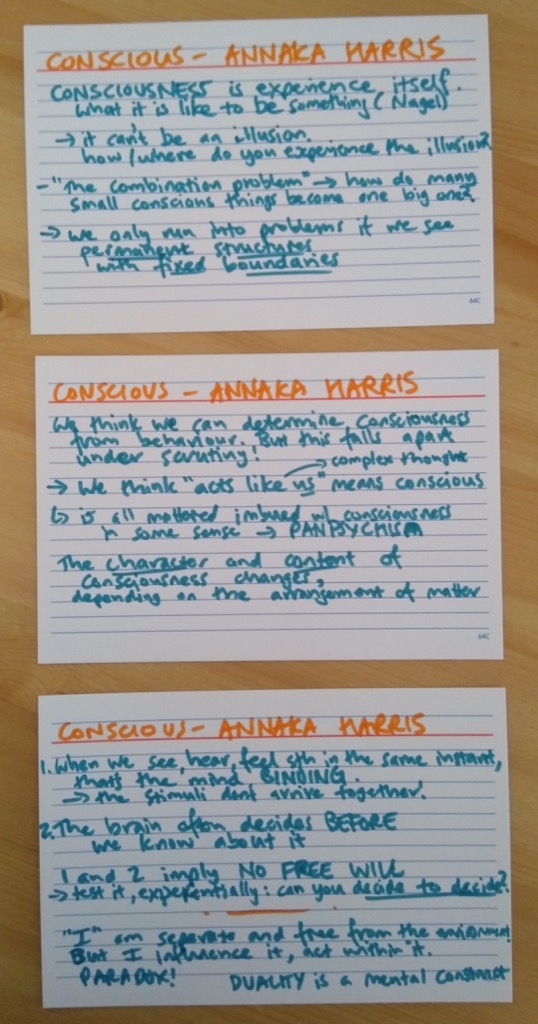 CONSCIOUS - ANNAKA HARRIS
CONSCIOUSNESS is experience itself.
What it is like to be something (Nagel)
→ it can't be an illusion.
how/where do you experience the illusion?
- "The combination problem" → how do many
small conscious things become one big one?
→ We only run into problems if we see
permanent structures
with fixed boundaries
64C
CONSCIOUS - ANNAKA HARRIS
We think we can determine consciousness
from behaviour. But this falls apart
under scrutiny!
→ complex thought
→ We think "acts like us" means conscious
↳ is all mattered imbued w/ consciousness
in some sense → PANPSYCHISM
The character and content of
consciousness changes,
depending on the arrangement of matter
64C
CONSCIOUS - ANNAKA HARRIS
1. When we see, hear, feel sth in the same instant,
that's the mind BINDING.
→ the stimuli don't arrive together!
2. The brain often decides BEFORE
we know about it
1 and 2 imply NO FREE WILL
→ test it, experientially: can you decide to decide?
"I" am separate and free from the environment
But I influence it, act within it.
PARADOX! DUALITY is a mental construct